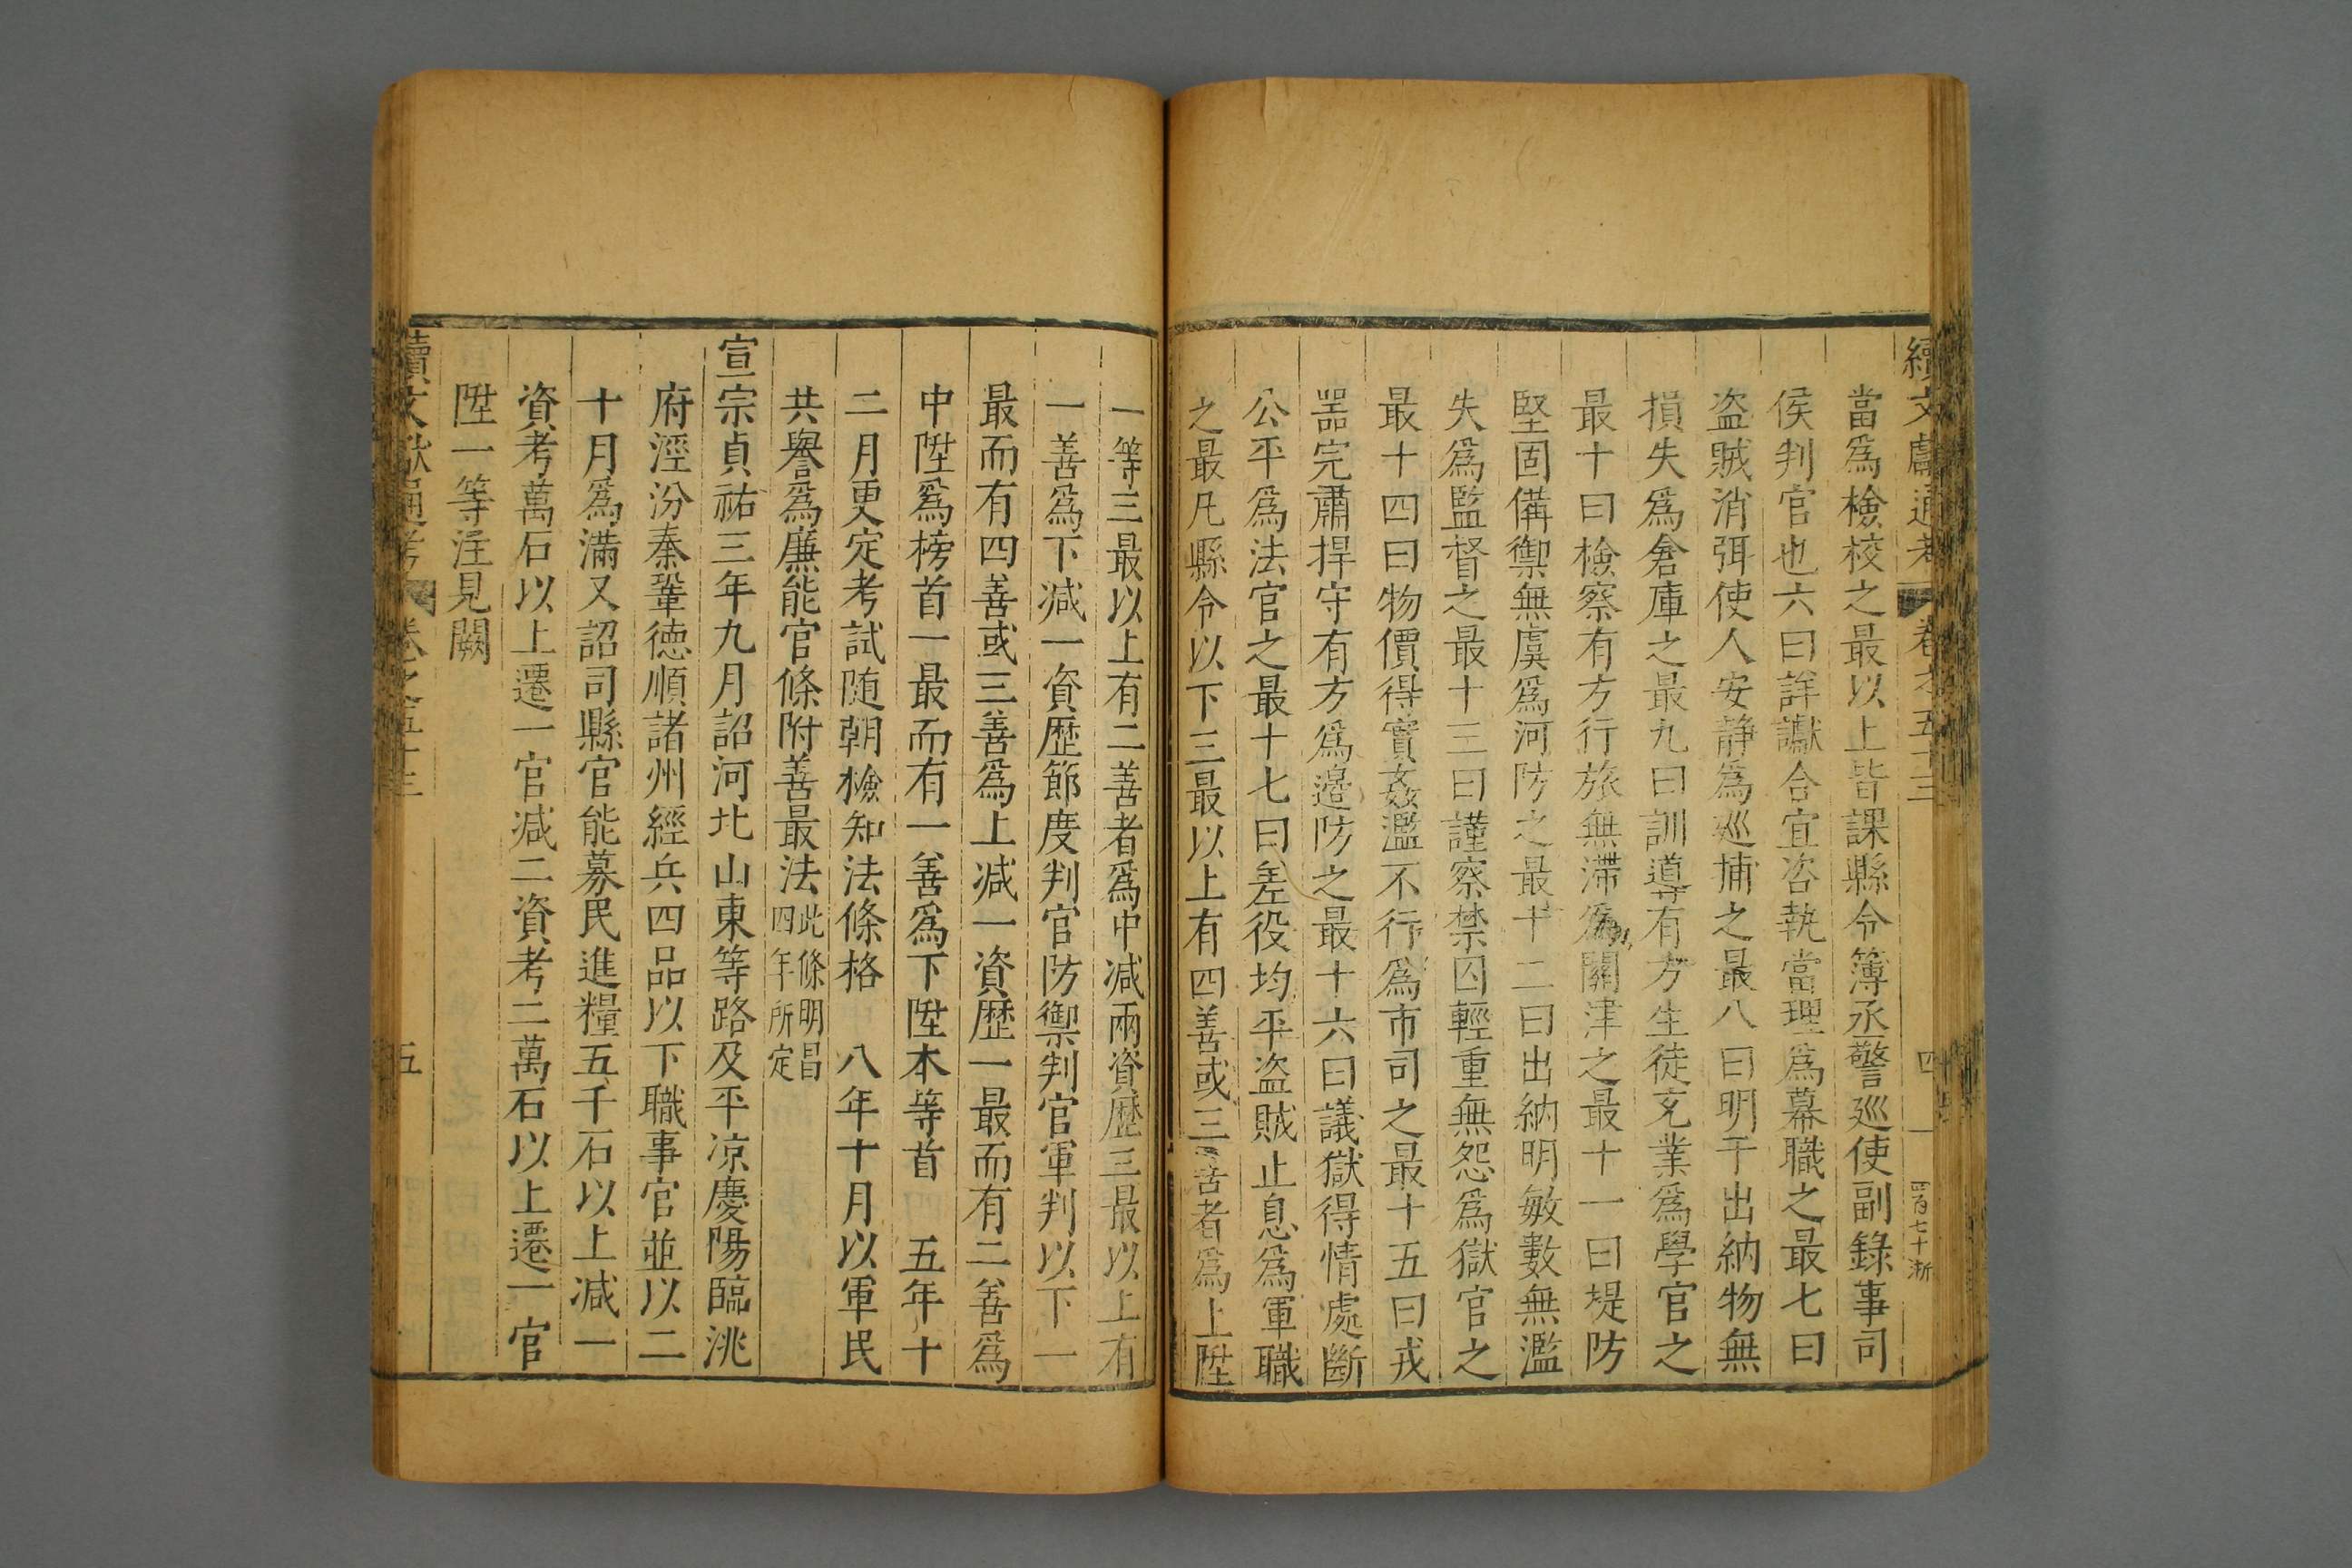 續文獻通考 卷之五十三 四 四百七十浙
當爲檢校之最以上皆課縣令簿丞警巡使副錄事司
侯判官也六曰詳讞合宜咨執當理爲幕職之最七曰
盗賊消弭使人安静爲廵捕之最八曰明于出納物無
損失爲倉庫之最九曰訓導有方生徒充業爲學官之
最十曰檢察有方行旅無滯爲關津之最十一曰堤防
堅固備禦無虞爲河防之最十二曰出納明敏數無濫
失爲監督之最十三曰謹察禁囚輕重無怨爲獄官之
最十四曰物價得實姦濫不行爲市司之最十五曰戎
噐完肅捍守有方爲邉防之最十六曰議獄得情處斷
公平爲法官之最十七曰差役均平盗賊止息爲軍職
之最凡縣令以下三最以上有四善或三善者爲上陞
一等三最以上有二善者爲中减兩資歷三最以上有
一善爲下减一資歷節度判官防禦判官軍判以下一
最而有四善或三善爲上减一資歷一最而有二善爲
中陞爲榜首一最而有一善爲下陞本等首 五年十
二月更定考試随朝檢知法條格 八年十月以軍民
共譽爲廉能官條附善最法此條明昌四年所定
宣宗貞祐三年九月詔河北山東等路及平凉慶陽臨洮
府涇汾秦鞏德順諸州經兵四品以下職事官並以二
十月爲滿又詔司縣官能募民進糧五千石以上减一
資考萬石以上遷一官减二資考二萬石以上遷一官
陞一等注見闕
續文獻通考 卷之五十三 五